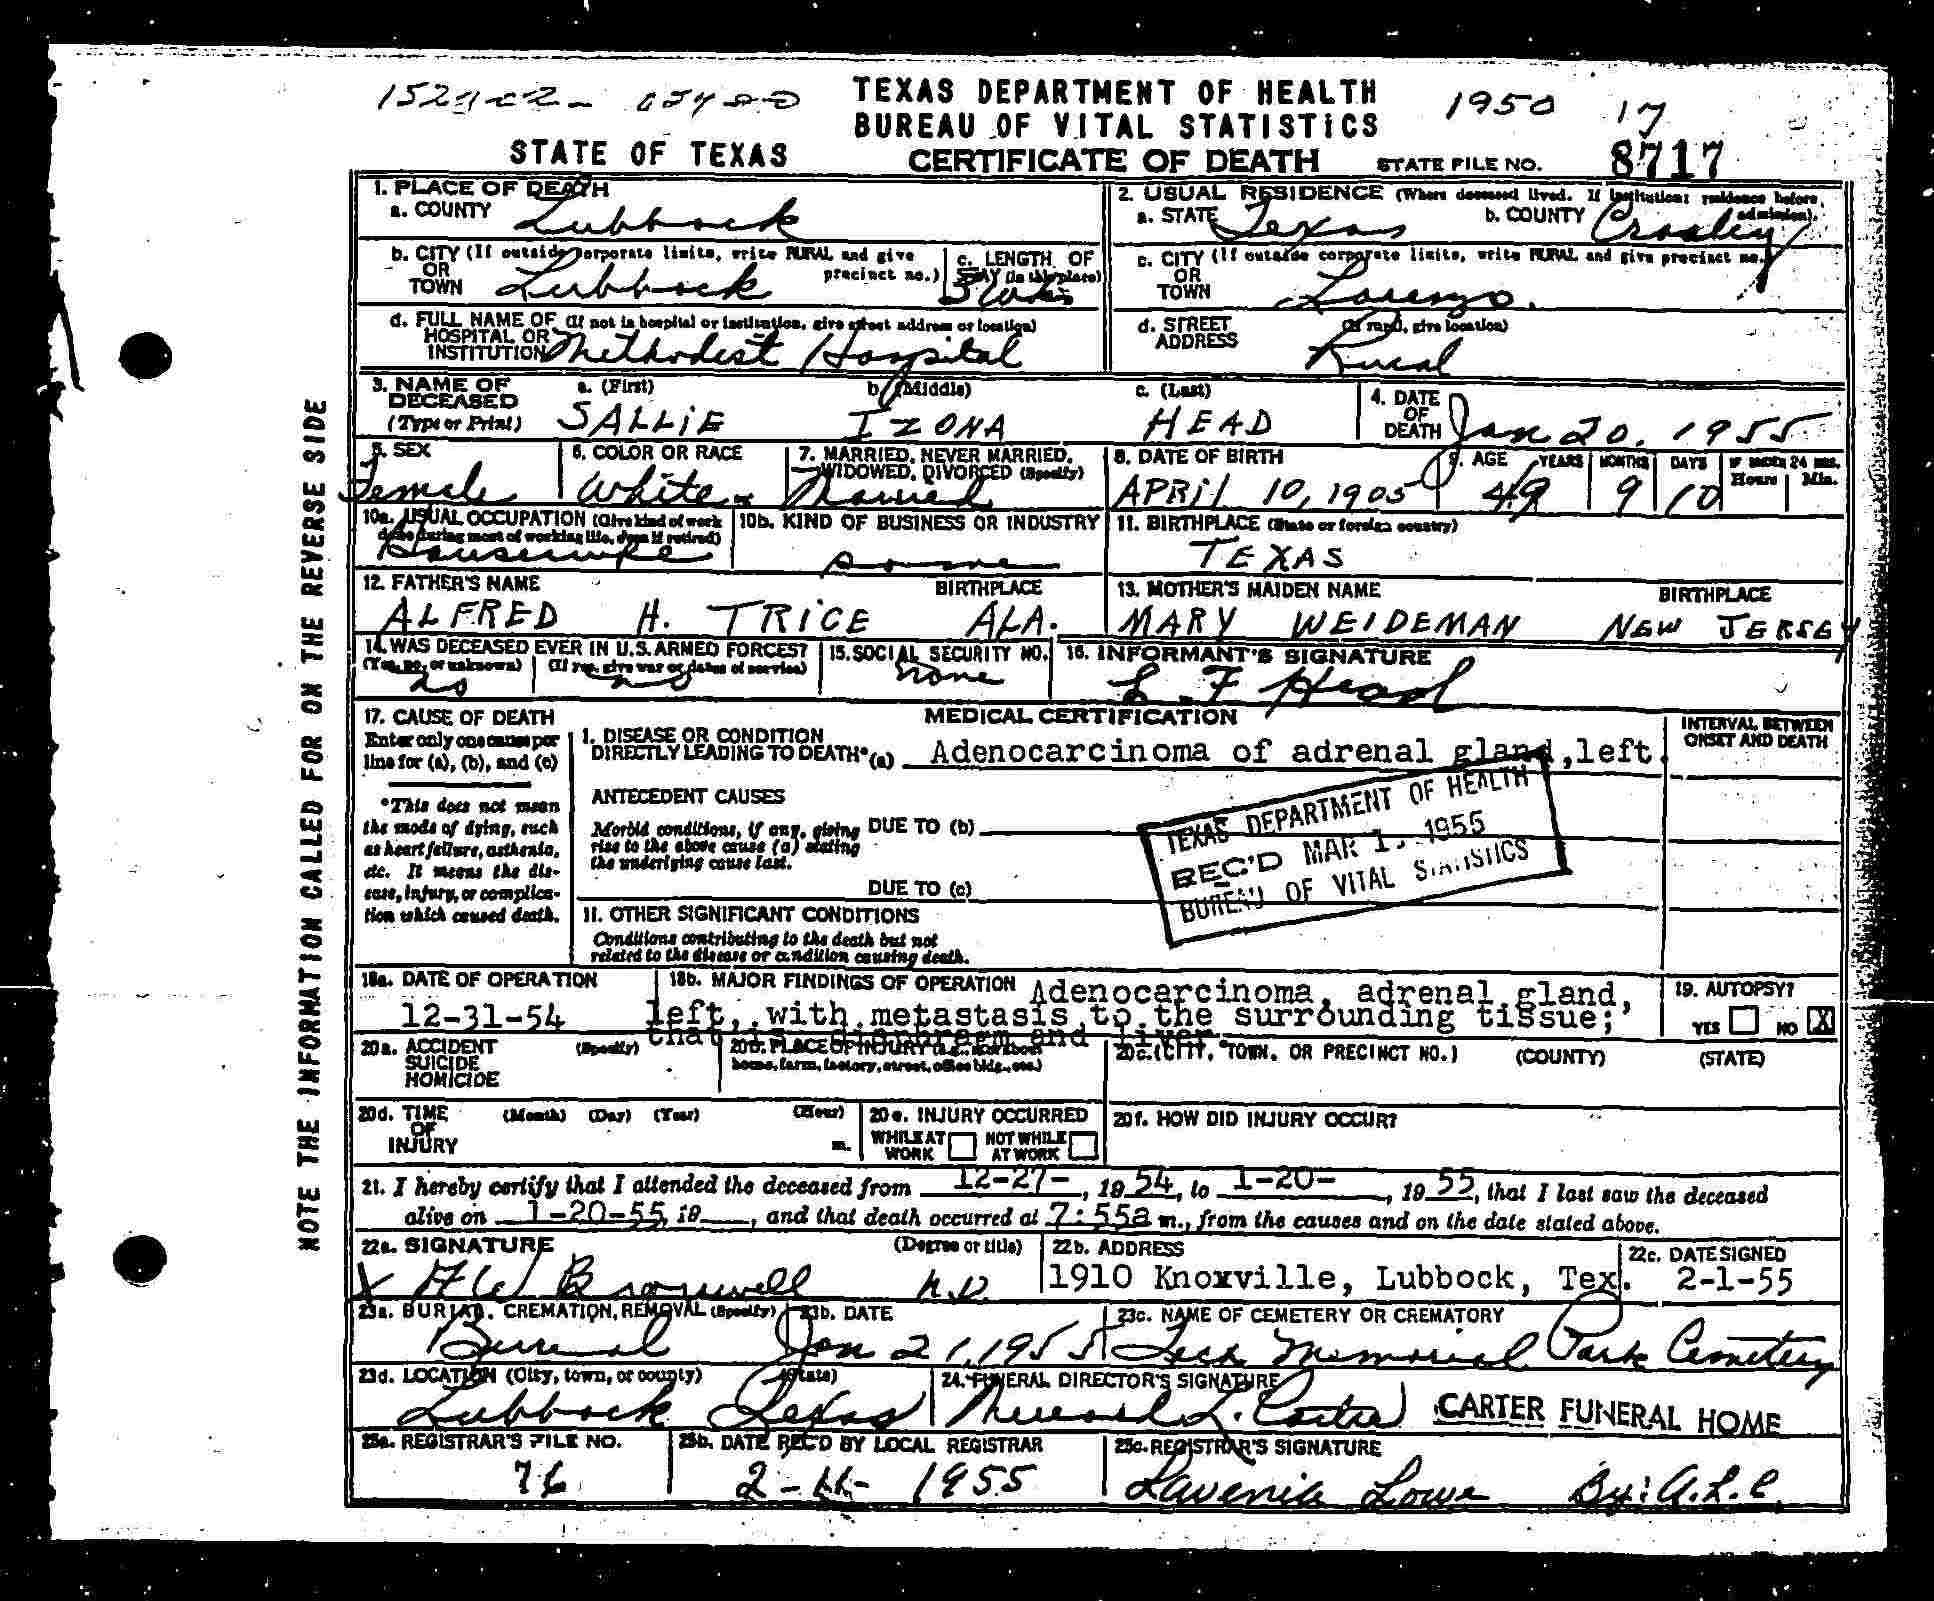 TEXAS DEPARTMENT OF HEALTH
1950 17
BUREAU OF VITAL STATISTICS
STATE OF TEXAS CERTIFICATE OF DEATH STATE FILE NO. 8717
NOTE THE INFORMATION CALLED FOR ON THE REVERSE SIDE
1. PLACE OF DEATH
a. COUNTY Lubbock
2. USUAL RESIDENCE (Where deceased lived. If institution: residence before admission).
a. STATE Texas b. COUNTY Crosby
b. CITY (If outside corporate limits, write RURAL and give precinct no.)
OR
TOWN Lubbock
c. LENGTH OF
STAY (in this place)
3 wks
c. CITY (If outside corporate limits, write RURAL and give precinct no.)
OR
TOWN Lorenzo.
d. FULL NAME OF (If not in hospital or institution, give street address or location)
HOSPITAL OR
INSTITUTION Methodist Hospital
d. STREET (If rural, give location)
ADDRESS Rural
3. NAME OF DECEASED (Type or Print)
a. (First) b. (Middle) c. (Last)
SALLIE IZONA HEAD
4. DATE OF DEATH Jan 20. 1955
5. SEX
Female
6. COLOR OR RACE
White
7. MARRIED, NEVER MARRIED, WIDOWED, DIVORCED (Specify)
Married
8. DATE OF BIRTH
APRIL 10, 1905
9. AGE YEARS MONTHS DAYS IF UNDER 24 HRS. Hours Min.
49 9 10
10a. USUAL OCCUPATION (Give kind of work done during most of working life, even if retired)
Housewife
10b. KIND OF BUSINESS OR INDUSTRY
11. BIRTHPLACE (State or foreign country)
TEXAS
12. FATHER'S NAME BIRTHPLACE
ALFRED H. TRICE ALA.
13. MOTHER'S MAIDEN NAME BIRTHPLACE
MARY WEIDEMAN NEW JERSEY
14. WAS DECEASED EVER IN U.S. ARMED FORCES?
(Yes, no, or unknown) (If yes, give war or dates of service)
no no
15. SOCIAL SECURITY NO.
none
16. INFORMANT'S SIGNATURE
L. F Head
17. CAUSE OF DEATH
Enter only one cause per
line for (a), (b), and (c)
*This does not mean
the mode of dying, such
as heart failure, asthenia,
etc. It means the dis-
ease, injury, or complica-
tion which caused death.
MEDICAL CERTIFICATION
INTERVAL BETWEEN
ONSET AND DEATH
I. DISEASE OR CONDITION
DIRECTLY LEADING TO DEATH* (a) Adenocarcinoma of adrenal gland, left.
ANTECEDENT CAUSES
Morbid conditions, if any, giving
rise to the above cause (a) stating
the underlying cause last.
DUE TO (b)
DUE TO (c)
TEXAS DEPARTMENT OF HEALTH
REC'D MAR 1. 1955
BUREAU OF VITAL STATISTICS
II. OTHER SIGNIFICANT CONDITIONS
Conditions contributing to the death but not
related to the disease or condition causing death.
18a. DATE OF OPERATION
12-31-54
18b. MAJOR FINDINGS OF OPERATION Adenocarcinoma, adrenal gland,
left, with metastasis to the surrounding tissue;
that is diaphragm and liver.
19. AUTOPSY?
YES NO X
20a. ACCIDENT (Specify)
SUICIDE
HOMICIDE
20b. PLACE OF INJURY (e.g., in or about
home, farm, factory, street, office bldg., etc.)
20c. (CITY, TOWN, OR PRECINCT NO.) (COUNTY) (STATE)
20d. TIME (Month) (Day) (Year) (Hour)
OF
INJURY m.
20e. INJURY OCCURRED
WHILE AT WORK NOT WHILE AT WORK
20f. HOW DID INJURY OCCUR?
21. I hereby certify that I attended the deceased from 12-27-, 1954, to 1-20-, 1955, that I last saw the deceased
alive on 1-20-55, 19 , and that death occurred at 7:55a m., from the causes and on the date stated above.
22a. SIGNATURE (Degree or title)
X M.D.
22b. ADDRESS
1910 Knoxville, Lubbock, Tex.
22c. DATE SIGNED
2-1-55
23a. BURIAL, CREMATION, REMOVAL (Specify)
Burial
23b. DATE
Jan 21, 1955
23c. NAME OF CEMETERY OR CREMATORY
Tech Memorial Park Cemetery
23d. LOCATION (City, town, or county) (State)
Lubbock Texas
24. FUNERAL DIRECTOR'S SIGNATURE
L. Carter CARTER FUNERAL HOME
25a. REGISTRAR'S FILE NO.
76
25b. DATE REC'D BY LOCAL REGISTRAR
1955
25c. REGISTRAR'S SIGNATURE
Lavenia Lowe By: A.L.C.